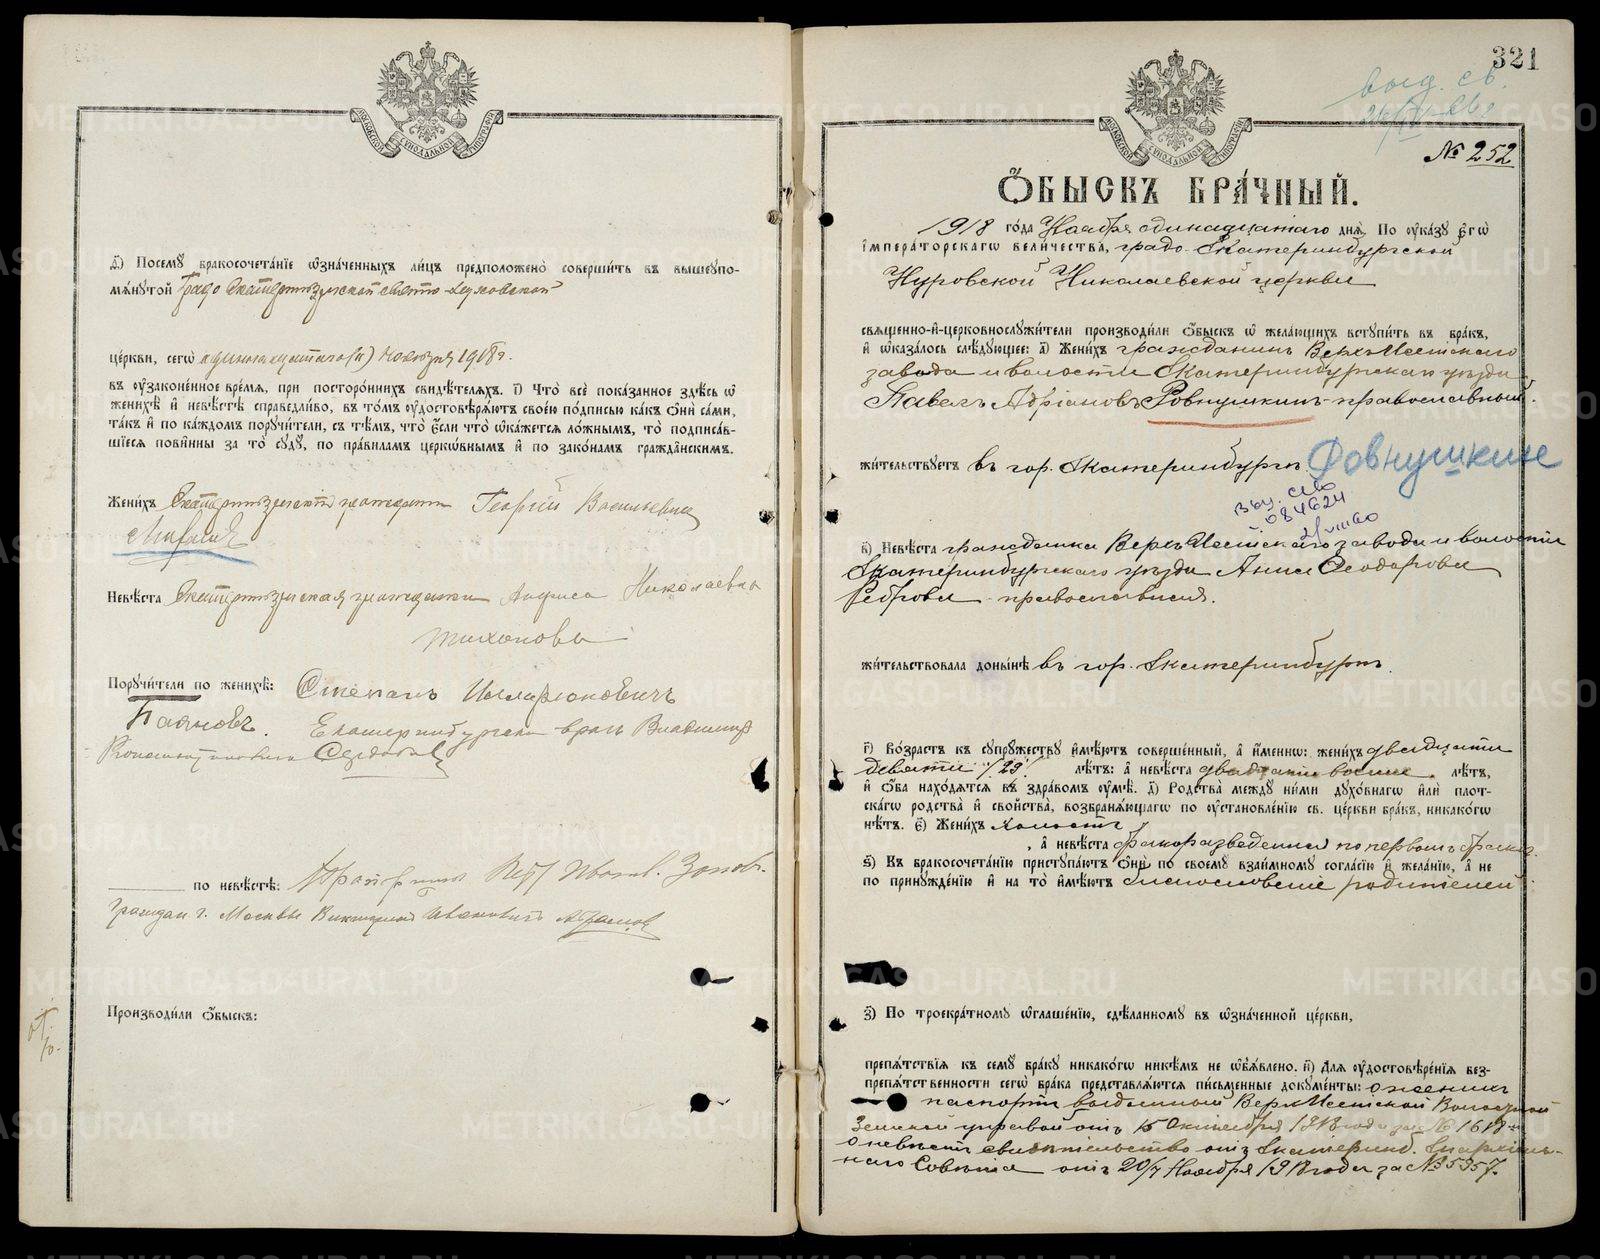 МОСКОВСКОЙ СѴНОДАЛЬНОЙ ТИПОГРАФІИ
д҃) Посемꙋ̀ бракосочета́нїе ѡ҆зна́ченныхъ ли́цъ предположено̀ соверши́ть въ вышеꙋпо-
мѧ́нꙋтой Градо Екатеринбургской Свято-Духовской
це́ркви, сегѡ̀ одиннадцатаго (11) ноября 1918 г.
въ ᲂу҆зако́ненное вре́мѧ, при посторо́ннихъ свидѣ́телѧхъ. і҃) Что̀ всѐ пока́занное здѣ́сь ѡ҆
женихѣ̀ и҆ невѣ́стѣ справедли́во, въ то́мъ ᲂу҆достовѣрѧ́ютъ свое́ю по́дписью ка́къ ѻ҆нѝ са́ми,
та́къ и҆ по ка́ждомъ порꙋчи́тели, съ тѣ́мъ, что̀ є҆сли что̀ ѡ҆ка́жетсѧ ло́жнымъ, то̀ подписа́в-
шїесѧ пови́нны за то̀ сꙋдꙋ̀, по пра́виламъ церкѡ́внымъ и҆ по зако́намъ гражда́нскимъ.
Жени́хъ Екатеринбургский гражданин Георгий Васильевич
Невѣ́ста Екатеринбургская гражданка Лариса Николаевна
Тихонова
Порꙋчи́тели по женихѣ̀: Степанъ Илларіоновичъ
Баяновъ. Екатеринбургский врачъ Владимир
Константинович
по невѣ́стѣ: Петр Иванов. Зотов.
Граждан г. Москвы Викторин Иванович Абрамов
Производи́ли ѻ҆́быскъ:
321
МОСКОВСКОЙ СѴНОДАЛЬНОЙ ТИПОГРАФІИ
выд. св.
№ 252
Ѻ҆́БЫСКЪ БРА́ЧНЫЙ.
1918 го́да Ноября одинадцатаго днѧ̀. По ᲂу҆ка́зꙋ Є҆гѡ̀
І҆мпера́торскагѡ вели́чества, градо-Екатеринбургской
Нуровской Николаевской церкви
свѧще́нно-и҆-церковнослꙋжи́тели производи́ли ѻ҆́быскъ ѡ҆ жела́ющихъ встꙋпи́ть въ бра́къ,
и҆ ѡ҆каза́лось слѣ́дꙋющее: а҃) Жени́хъ гражданинъ Верхъ Исетскаго
завода и волости Екатеринбургскаго уѣзда
Павелъ Адріановъ Ровнушкинъ - православный.
жи́тельствꙋетъ въ гор. Екатеринбургѣ. Ровнушкин
084624
в҃) Невѣ́ста гражданка Верхъ Исетскаго завода и волости
Екатеринбургскаго уѣзда Анна Ѳеодорова
Реброва - православная.
жи́тельствовала доны́нѣ въ гор. Екатеринбургѣ.
г҃) Во́зрастъ къ сꙋпрꙋ́жествꙋ и҆мѣ́ютъ соверше́нный, а҆ и҆́менно: жени́хъ двадцати
девяти /29/ лѣ́тъ: а҆ невѣ́ста двадцати восьми. лѣ́тъ,
и҆ ѻ҆́ба нахо́дѧтсѧ въ здра́вомъ ᲂу҆мѣ̀. д҃) Родства̀ междꙋ̀ ни́ми дꙋхо́внагѡ и҆лѝ пло́т-
ска́гѡ родства̀ и҆ сво́йства, возбранѧ́ющагѡ по ᲂу҆становле́нїю св. це́ркви бра́къ, никако́гѡ
нѣ́тъ. є҃) Жени́хъ холостъ
, а҆ невѣ́ста бракоразведенная по первомъ бракѣ.
ѕ҃) Къ бракосочета́нїю пристꙋпа́ютъ ѻ҆нѝ по своемꙋ̀ взаи́мномꙋ согла́сїю и҆ жела́нїю, а҆ не
по принꙋжде́нїю и҆ на то̀ и҆мѣ́ютъ благословеніе родителей
з҃) По троекра́тномꙋ ѡ҆глаше́нїю, сдѣ́ланномꙋ въ ѡ҆зна́ченной це́ркви,
препѧ́тствїѧ къ семꙋ̀ бра́кꙋ никако́гѡ никѣ́мъ не ѡ҆б̾ѧ́влено. и҃) Длѧ ᲂу҆достовѣре́нїѧ без-
препѧ́тственности сегѡ̀ бра́ка представлѧ́ютсѧ пи́сьменные докꙋме́нты: о женихѣ
паспортъ выданный Верхъ Исетской Волостной
Земской управой отъ 15 Октября 1918 года за № 1618
о невѣстѣ свидѣтельство отъ Екатеринб. Епархіаль-
наго Совѣта отъ 20/7 Ноября 1918 года за № 5357.
METRIKI.GASO-URAL.RU